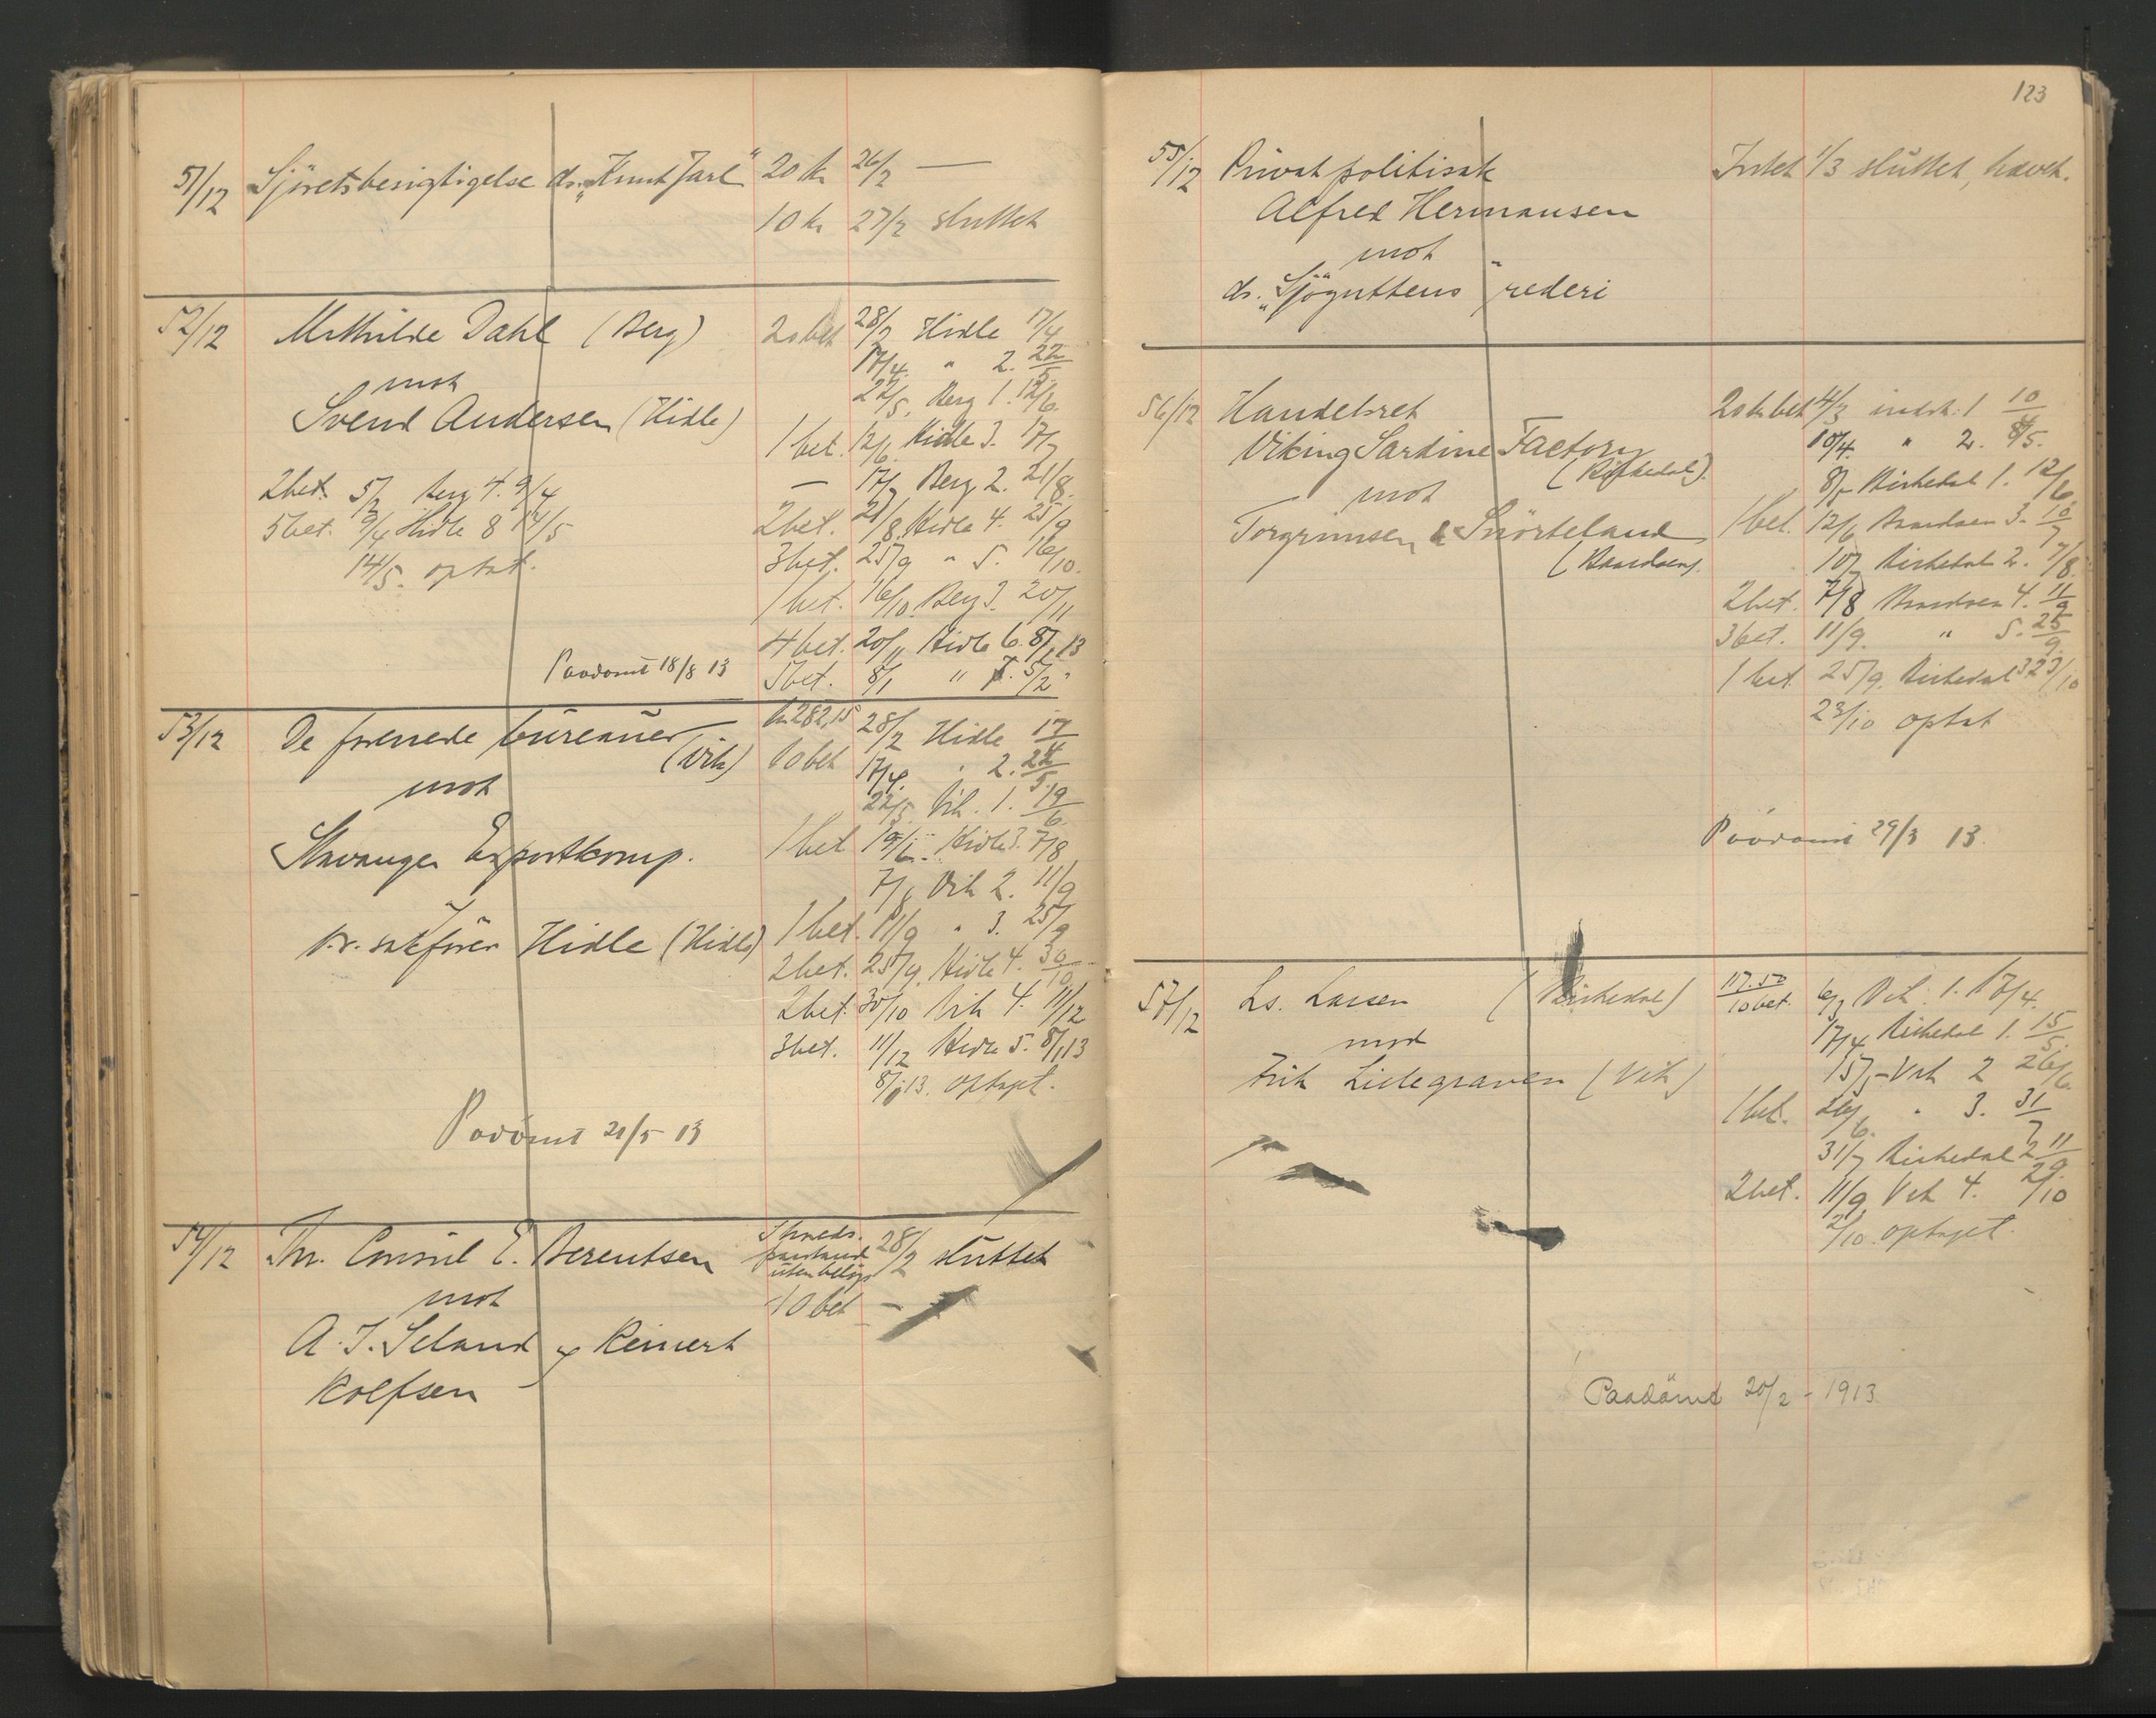 51/12 Sjöretsbesigtigelse ds. „Knut Jarl" 20 kr 26/2 —
10 kr 27/2 sluttet
52/12 Mathilde Dahl (Berg) 20 bet 28/2 Hidle 17/4
mot 17/4 " 2. 22/5
22/5. Berg 1. 12/6.
Svend Andersen (Hidle)
1 bet. 12/6. Hidle 3. 17/7
— 17/7 Berg 2. 21/8.
2 bet. 21/8. Hidle 4. 25/9
3 bet. 25/9 " 5. 16/10.
1 bet. 16/10. Berg 3. 20/11
4 bet. 20/11 Hidle 6. 8/1 13
5 bet. 8/1 " 7. 5/2
2 bet. 5/2 Berg 4. 9/4
5 bet. 9/4 Hidle 8 14/5
14/5. optat.
Paadömt 18/8 13
53/12 De forenede bureauer (Vik) kr 282,15 28/2 Hidle 17/4
10 bet 17/4. " 2. 22/5.
mot 22/5. Vik. 1. 19/6.
Stavanger Exportkomp. 1 bet 19/6. Hidle 3. 7/8
7/8 Vik 2. 11/9
v. sakförer Hidle (Hidle) 1 bet. 11/9 " 3. 25/9
2 bet. 25/9. Hidle 4. 30/10
2 bet. 30/10 Vik 4. 11/12
3 bet. 11/12 Hidle 5. 8/1 13
8/1 13. optaget.
Paadömt 21/5 13
54/12 Th. Consul E. Berentsen 28/2 sluttet
uten belöp
mot 10 bet —
A. J. Seland & Reinert
Rolfsen
123
55/12 Privat politisak Intet 1/3 sluttet, hævet.
Alfred Hermansen
mot
ds. „Sjöguttens" rederi
56/12 Handelsret 20 kr bet 4/3 indst. 1 10/4
Viking Sardine Factory 10/4. " 2. 8/5.
(Birkedal). 8/5 Birkedal 1. 12/6
mot
Torgrimsen & Snörteland 1 bet. 12/6 Baardsen 3. 10/7
(Baardsen). 10/7 Birkedal 2. 7/8.
2 bet. 7/8 Baardsen 4. 11/9
3 bet. 11/9. " 5. 25/9.
1 bet 25/9. Birkedal 3 23/10
23/10 optat
Paadömt 29/3 13.
57/12 Ls. Larsen (Birkedal) 117.50 6/3 Vik. 1. 17/4.
10 bet.
mod 17/4 Birkedal 1. 15/5.
Erik Lillegraven (Vik) 15/5 – Vik 2 26/6.
1 bet. 26/6. " 3. 31/7
31/7 Birkedal 2 11/9.
2 bet. 11/9. Vik 4. 2/10
2/10. optaget.
Paadömt 20/2 - 1913.